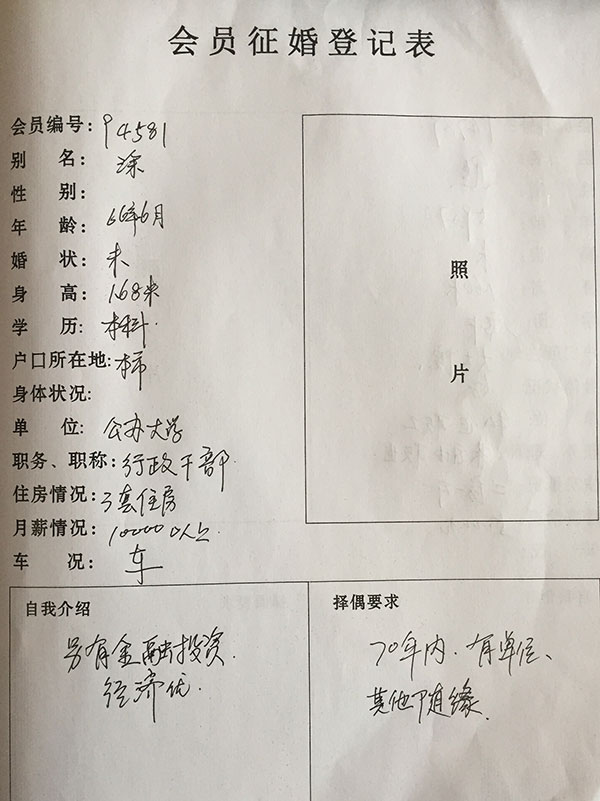 会员征婚登记表
会员编号: 94581
别 名: 涂
性 别:
年 龄: 66年6月
婚 状: 未
身 高: 1.68米
学 历: 本科
户口所在地: 本市
身体状况:
单 位: 公办大学
职务、职称: 行政干部
住房情况: 3套住房
月薪情况: 10000以上
车 况: 车
照
片
自我介绍
另有金融投资.
经济优.
择偶要求
70年内.有单位、
其他随缘.